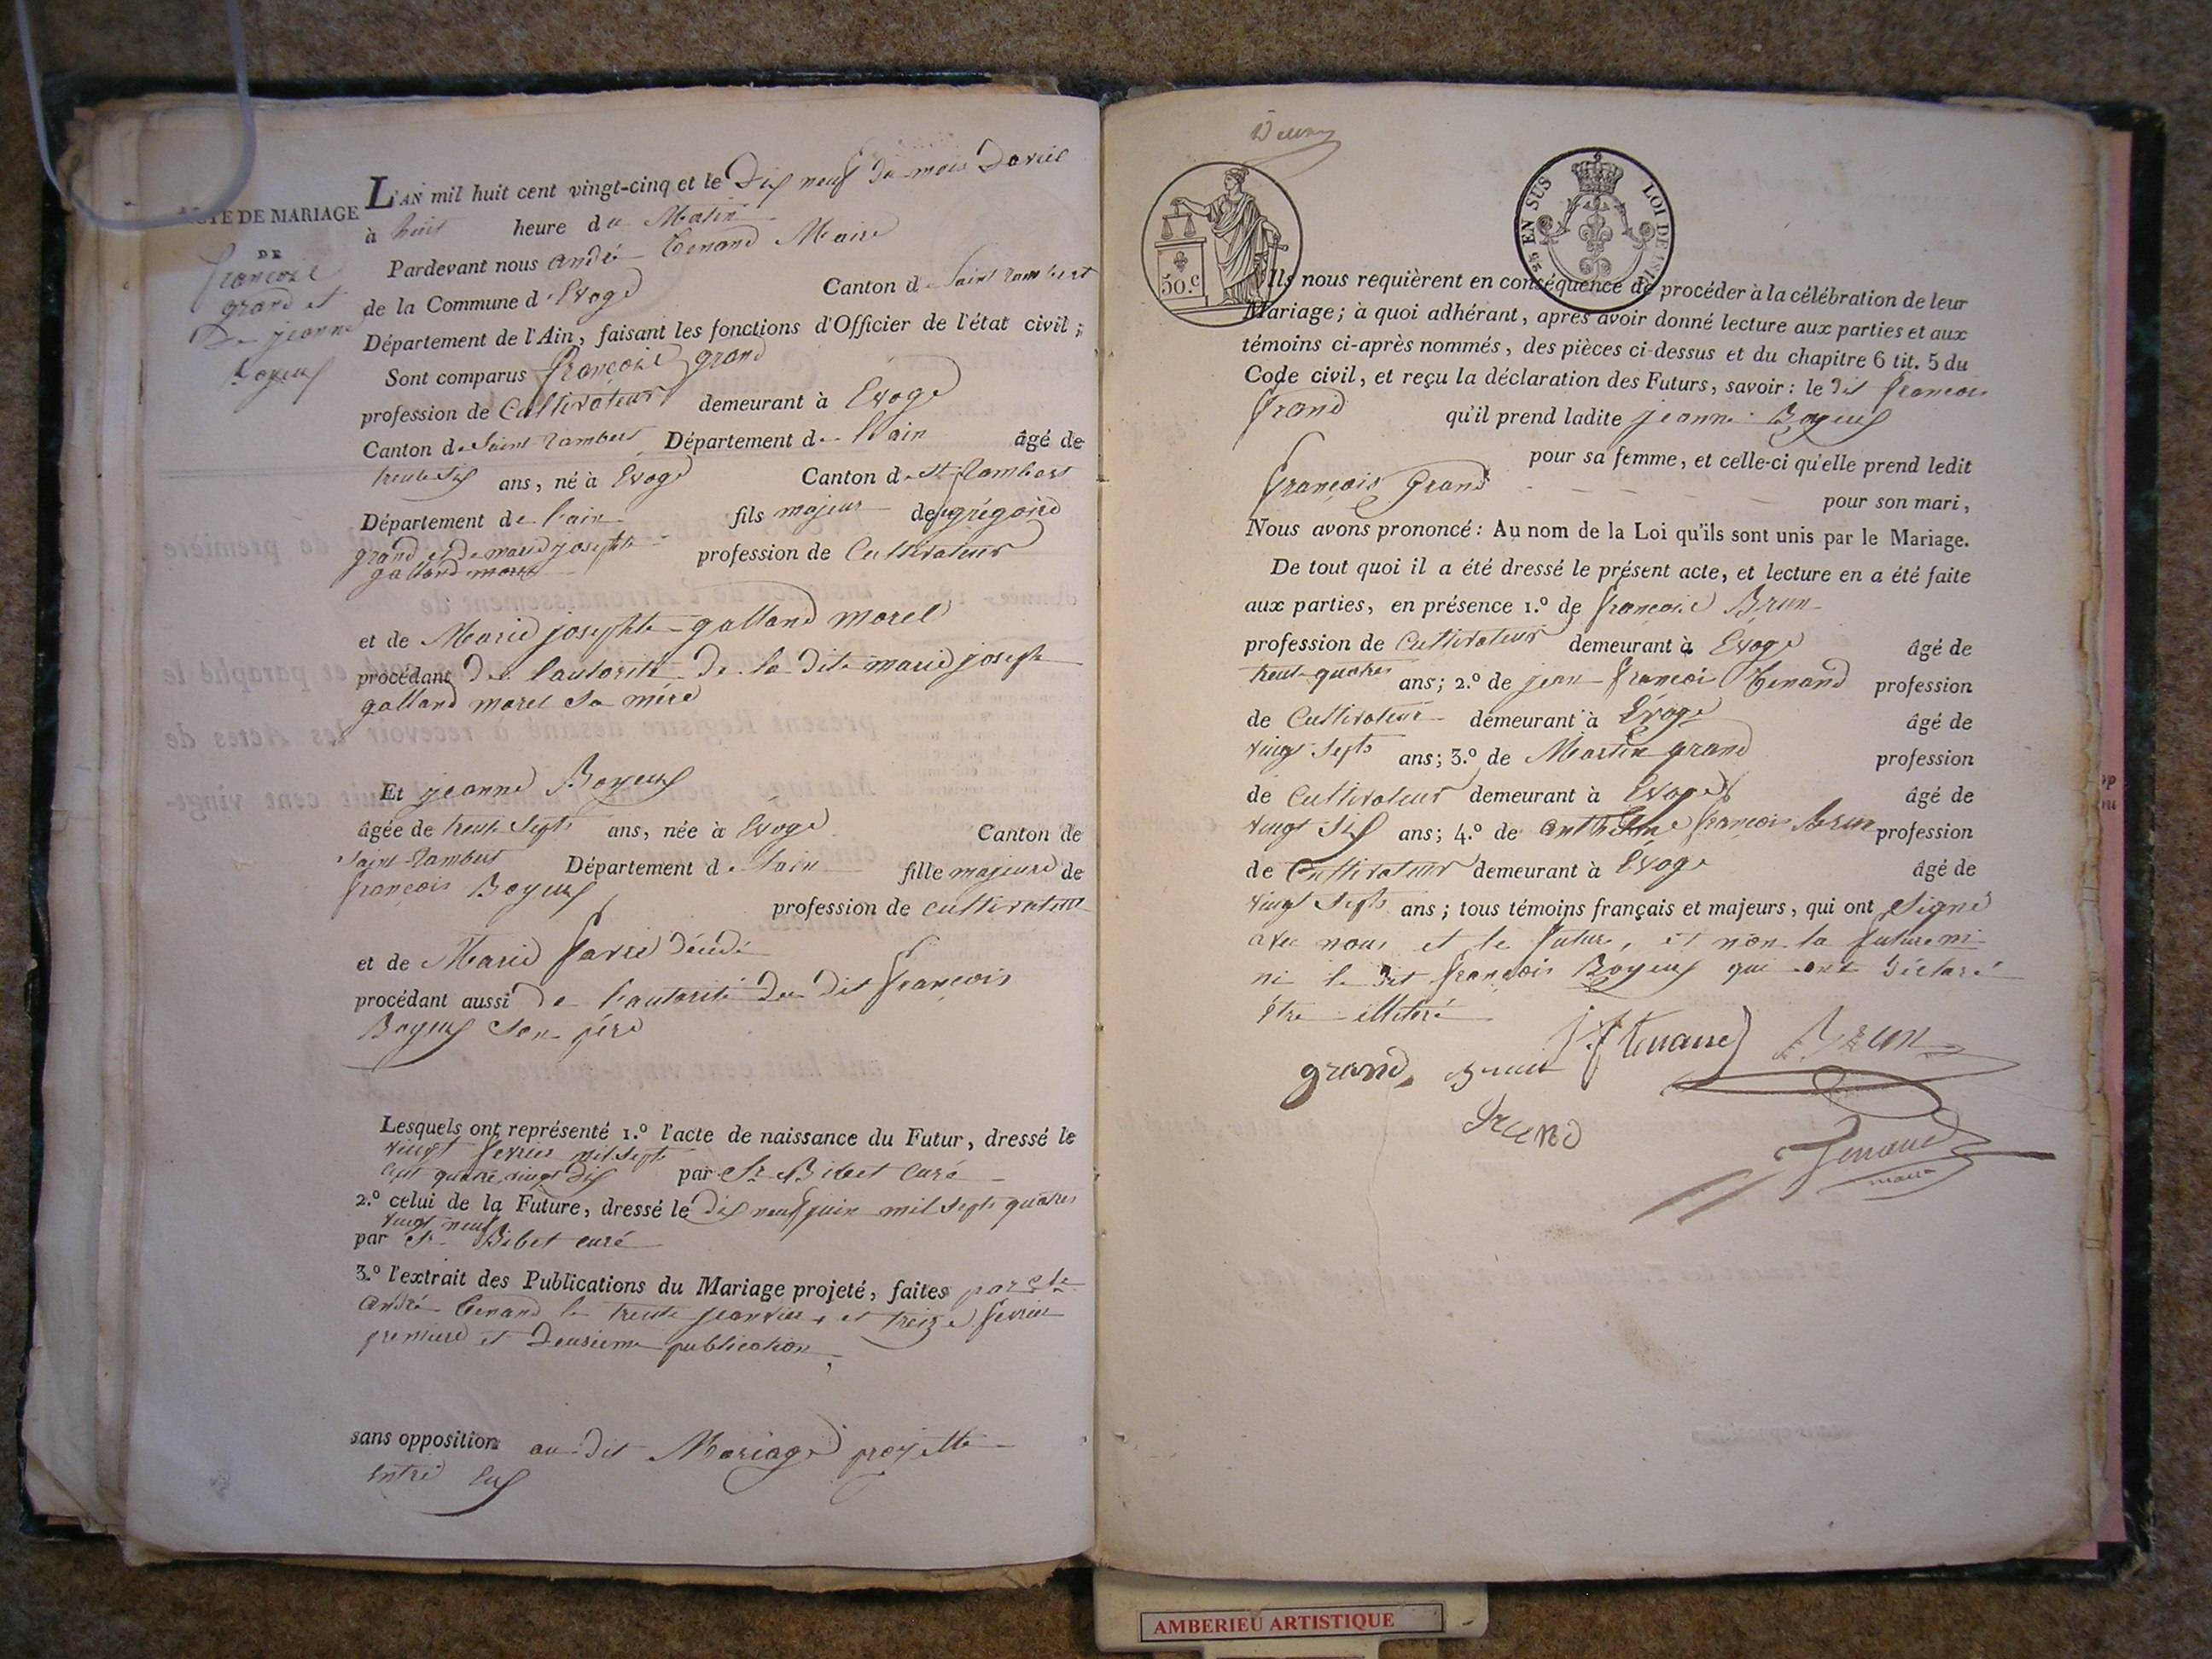 ACTE DE MARIAGE
DE
françois
grand et
De jeanne
Boyeux
L'AN mil huit cent vingt-cinq et le Dix neuf du mois Davril
à huit heure du Matin
Pardevant nous andré tenand Maire
de la Commune d'Evoge Canton de Saint rambert
Département de l'Ain, faisant les fonctions d'Officier de l'état civil ;
Sont comparus françois grand
profession de Cultivateur demeurant à Evoge
Canton de Saint rambert Département de l'ain âgé de
trente six ans, né à Evoge Canton de St rambert
Département de l'ain fils majeur de grégoire
grand et de marie josephte profession de Cultivateur
galland morel
et de Marie josephte galland morel
procédant De l'autorité De la dite marie josephte
galland morel sa mére
Et jeanne Boyeux
âgée de trente septs ans, née à Evoge Canton de
Saint-rambert Département de l'ain fille majeure de
françois Boyeux
profession de cultivateur
et de Marie favre décédé
procédant aussi de l'autorité du dit françois
Boyeux son pére
Lesquels ont représenté 1.º l'acte de naissance du Futur, dressé le
vingt fevrier mil septs
cent quatre vingt dix par Sr Bibet curé
2.º celui de la Future, dressé le dix neuf juin mil septs quatre
vingt neuf
par Sr Bibet curé
3.º l'extrait des Publications du Mariage projeté, faites par
andré tenand le trente janvier, et treize fevrier
premiere et Deusieme publication
sans opposition au dit Mariage projetté
entre eux
50.C
25 EN SUS LOI DE 181
Ils nous requièrent en conséquence de procéder à la célébration de leur
Mariage ; à quoi adhérant, après avoir donné lecture aux parties et aux
témoins ci-après nommés, des pièces ci-dessus et du chapitre 6 tit. 5 du
Code civil, et reçu la déclaration des Futurs, savoir : le dit françois
grand qu'il prend ladite jeanne Boyeux
pour sa femme, et celle-ci qu'elle prend ledit
françois Grand pour son mari,
Nous avons prononcé : Au nom de la Loi qu'ils sont unis par le Mariage.
De tout quoi il a été dressé le présent acte, et lecture en a été faite
aux parties, en présence 1.º de françois Brun
profession de Cultivateur demeurant à Evoge âgé de
trente quatres ans ; 2.º de jean françois tenand profession
de Cultivateur demeurant à Evoge âgé de
vingt septs ans ; 3.º de Martin grand profession
de Cultivateur demeurant à Evoges âgé de
vingt six ans ; 4.º de anthelme françois Brun profession
de Cultivateur demeurant à Evoge âgé de
vingt septs ans ; tous témoins français et majeurs, qui ont signé
avec nous et le futur, et non la future ni
ni le dit françois Boyeux qui ont déclaré
être illiteré
grand brun jf tenand Brun
Grand
Tenand
maire
AMBERIEU ARTISTIQUE